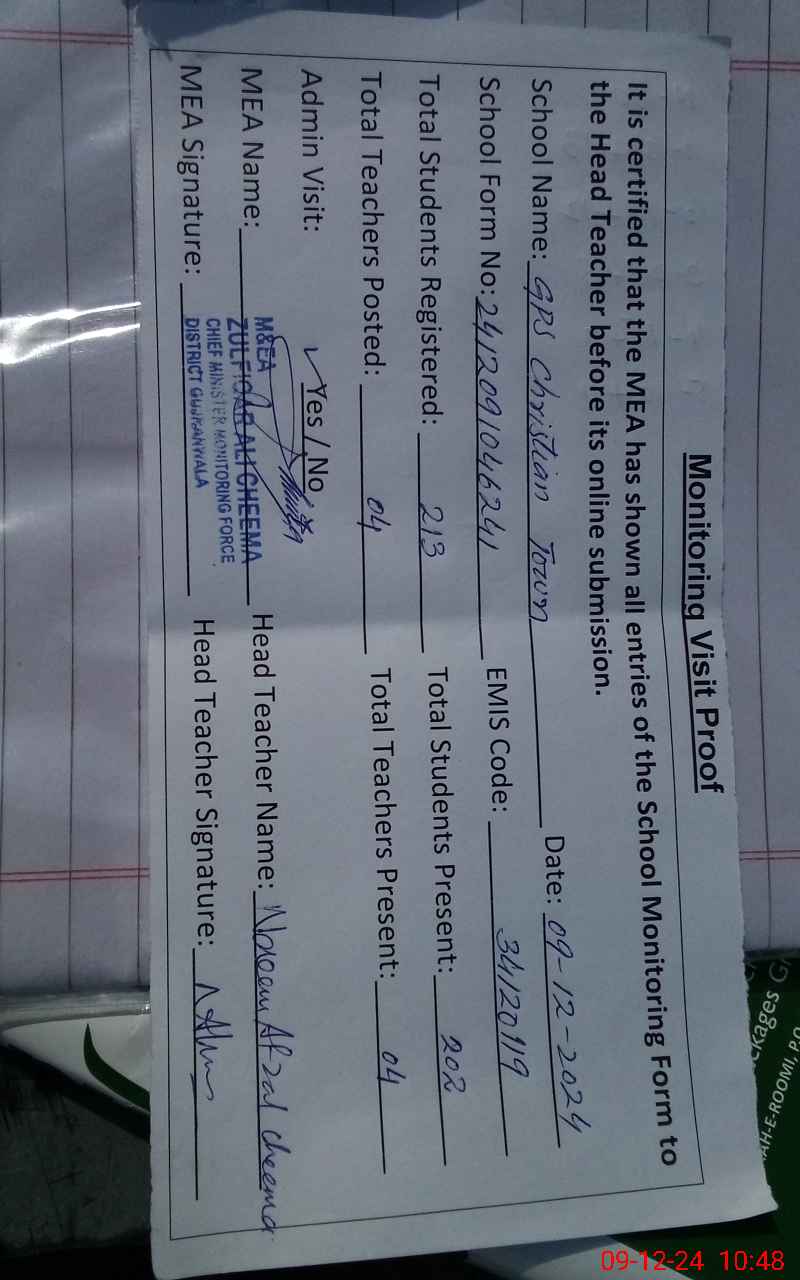 Monitoring Visit Proof
It is certified that the MEA has shown all entries of the School Monitoring Form to
the Head Teacher before its online submission.
School Name: GPS Christian Town Date: 09-12-2024
School Form No: 2412091046241 EMIS Code: 34120119
Total Students Registered: 213 Total Students Present: 202
Total Teachers Posted: 04 Total Teachers Present: 04
Admin Visit: ✓Yes / No
MEA Name: Head Teacher Name: Naeem Afzal Cheema
MEA Signature: Head Teacher Signature:
M&EA
ZULFIQAR ALI CHEEMA
CHIEF MINISTER MONITORING FORCE
DISTRICT GUJRANWALA
ckages G
AH-E-ROOMI, P.O
09-12-24 10:48